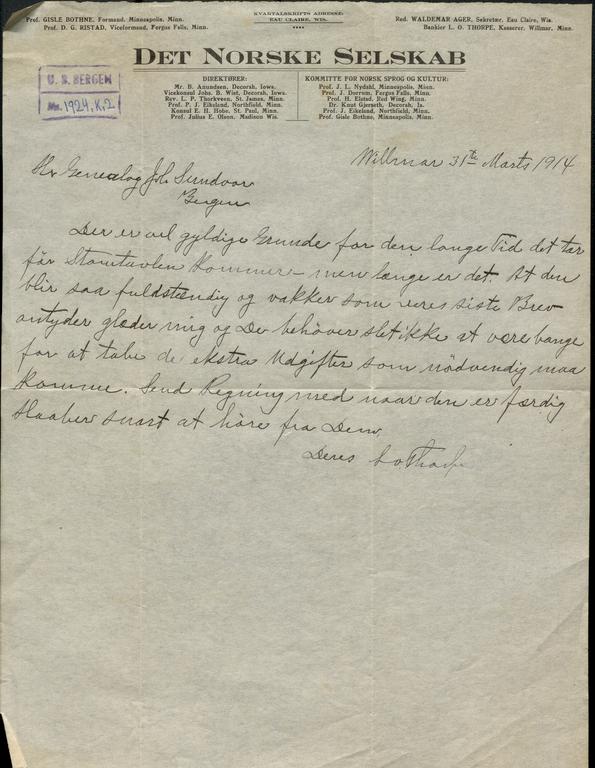 Prof. GISLE BOTHNE, Formand, Minneapolis, Minn.
Prof. D. G. RISTAD, Viceformand, Fergus Falls, Minn.
KVARTALSKRIFTS ADRESSE:
EAU CLAIRE, WIS.
Red. WALDEMAR AGER, Sekretær, Eau Claire, Wis.
Bankier L. O. THORPE, Kasserer, Willmar, Minn.
DET NORSKE SELSKAB
U. B. BERGEN
Ms. 1924, K. 2
DIREKTØRER:
Mr. B. Anundsen, Decorah, Iowa.
Vicekonsul Johs. B. Wist, Decorah, Iowa.
Rev. L. P. Thorkveen, St. James, Minn.
Prof. P. J. Eikeland, Northfield, Minn.
Konsul E. H. Hobe, St. Paul, Minn.
Prof. Julius E. Olson, Madison Wis.
KOMMITTE FOR NORSK SPROG OG KULTUR:
Prof. J. L. Nydahl, Minneapolis, Minn.
Prof. J. Dorrum, Fergus Falls, Minn.
Prof. H. Elstad, Red Wing, Minn.
Dr. Knut Gjerseth, Decorah, Ia.
Prof. J. Eikeland, Northfield, Minn.
Prof. Gisle Bothne, Minneapolis, Minn.
Willmar 31te Marts 1914
Hr. Genealog Joh. Sundvor
Bergen
Der er vel gyldige Grunde for den lange Tid det tar
før Stamtavlen kommer – men længe er det. At den
blir saa fuldstændig og vakker som deres siste Brev
antyder glæder mig og De behøver slet ikke at være bange
for at tabe de ekstra Udgifter som nødvendig maa
komme. Send Regning med naar den er færdig
Haaber snart at høre fra Dem
Deres L O Thorpe